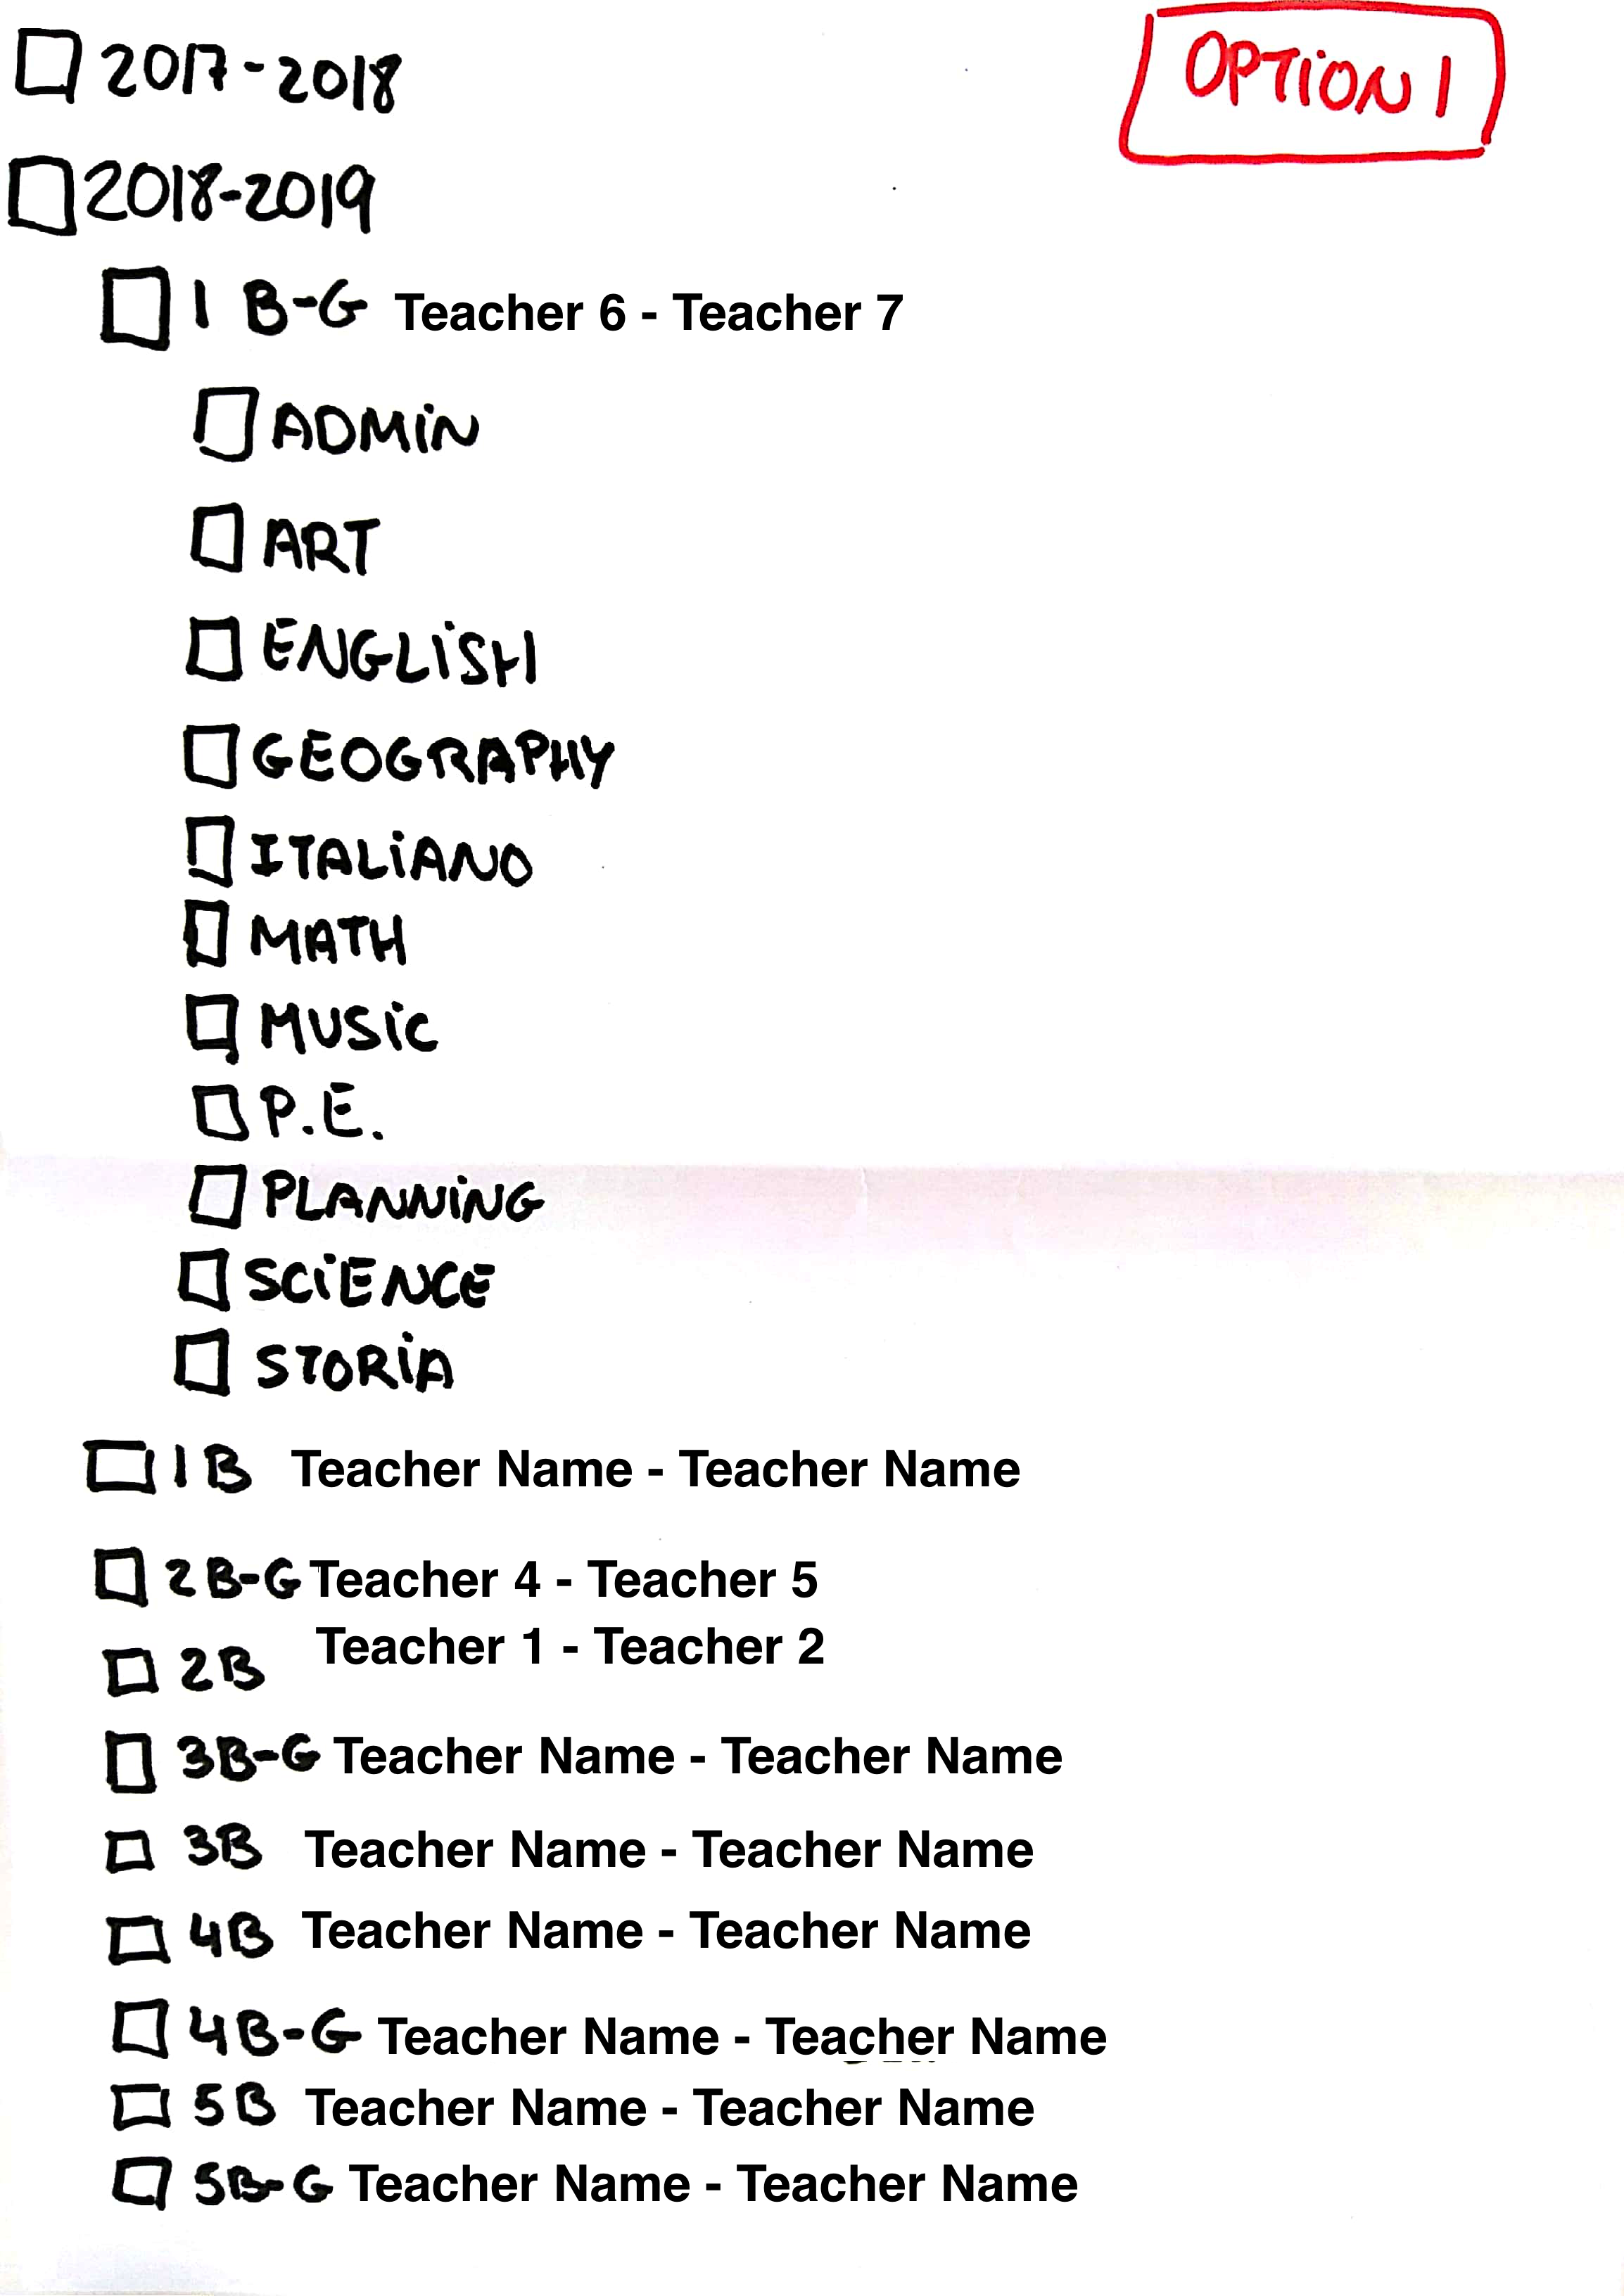 OPTION 1
2017-2018
2018-2019
1 B-G Teacher 6 - Teacher 7
ADMiN
ART
ENGLiSH
GEOGRAPHY
ITALiANO
MATH
MUSiC
P.E.
PLANNiNG
SCiENCE
STORiA
1B Teacher Name - Teacher Name
2B-G Teacher 4 - Teacher 5
2B Teacher 1 - Teacher 2
3B-G Teacher Name - Teacher Name
3B Teacher Name - Teacher Name
4B Teacher Name - Teacher Name
4B-G Teacher Name - Teacher Name
5B Teacher Name - Teacher Name
5B-G Teacher Name - Teacher Name